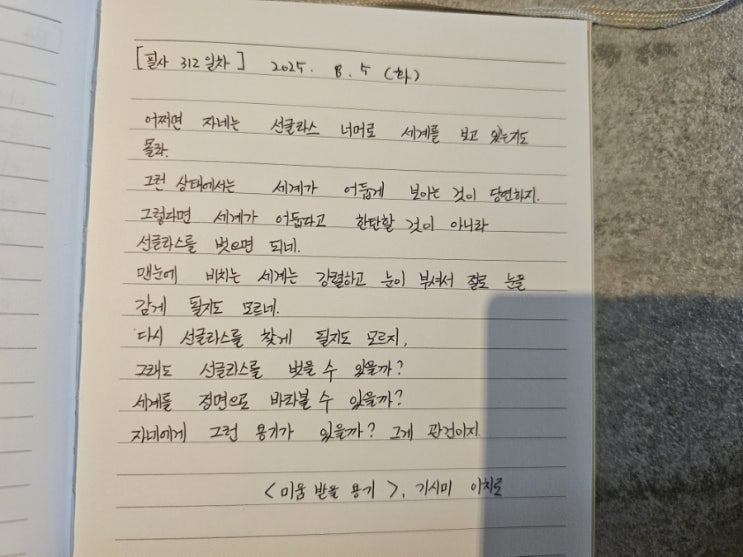 [필사 312일차] 2025. 8. 5 (화)
어쩌면 자네는 선글라스 너머로 세계를 보고 있는지도
몰라.
그런 상태에서는 세계가 어둡게 보이는 것이 당연하지.
그렇다면 세계가 어둡다고 한탄할 것이 아니라
선글라스를 벗으면 되네.
맨눈에 비치는 세계는 강렬하고 눈이 부셔서 절로 눈을
감게 될지도 모르네.
다시 선글라스를 찾게 될지도 모르지.
그래도 선글라스를 벗을 수 있을까?
세계를 정면으로 바라볼 수 있을까?
자네에게 그런 용기가 있을까? 그게 관건이지.
<미움 받을 용기>, 기시미 이치로